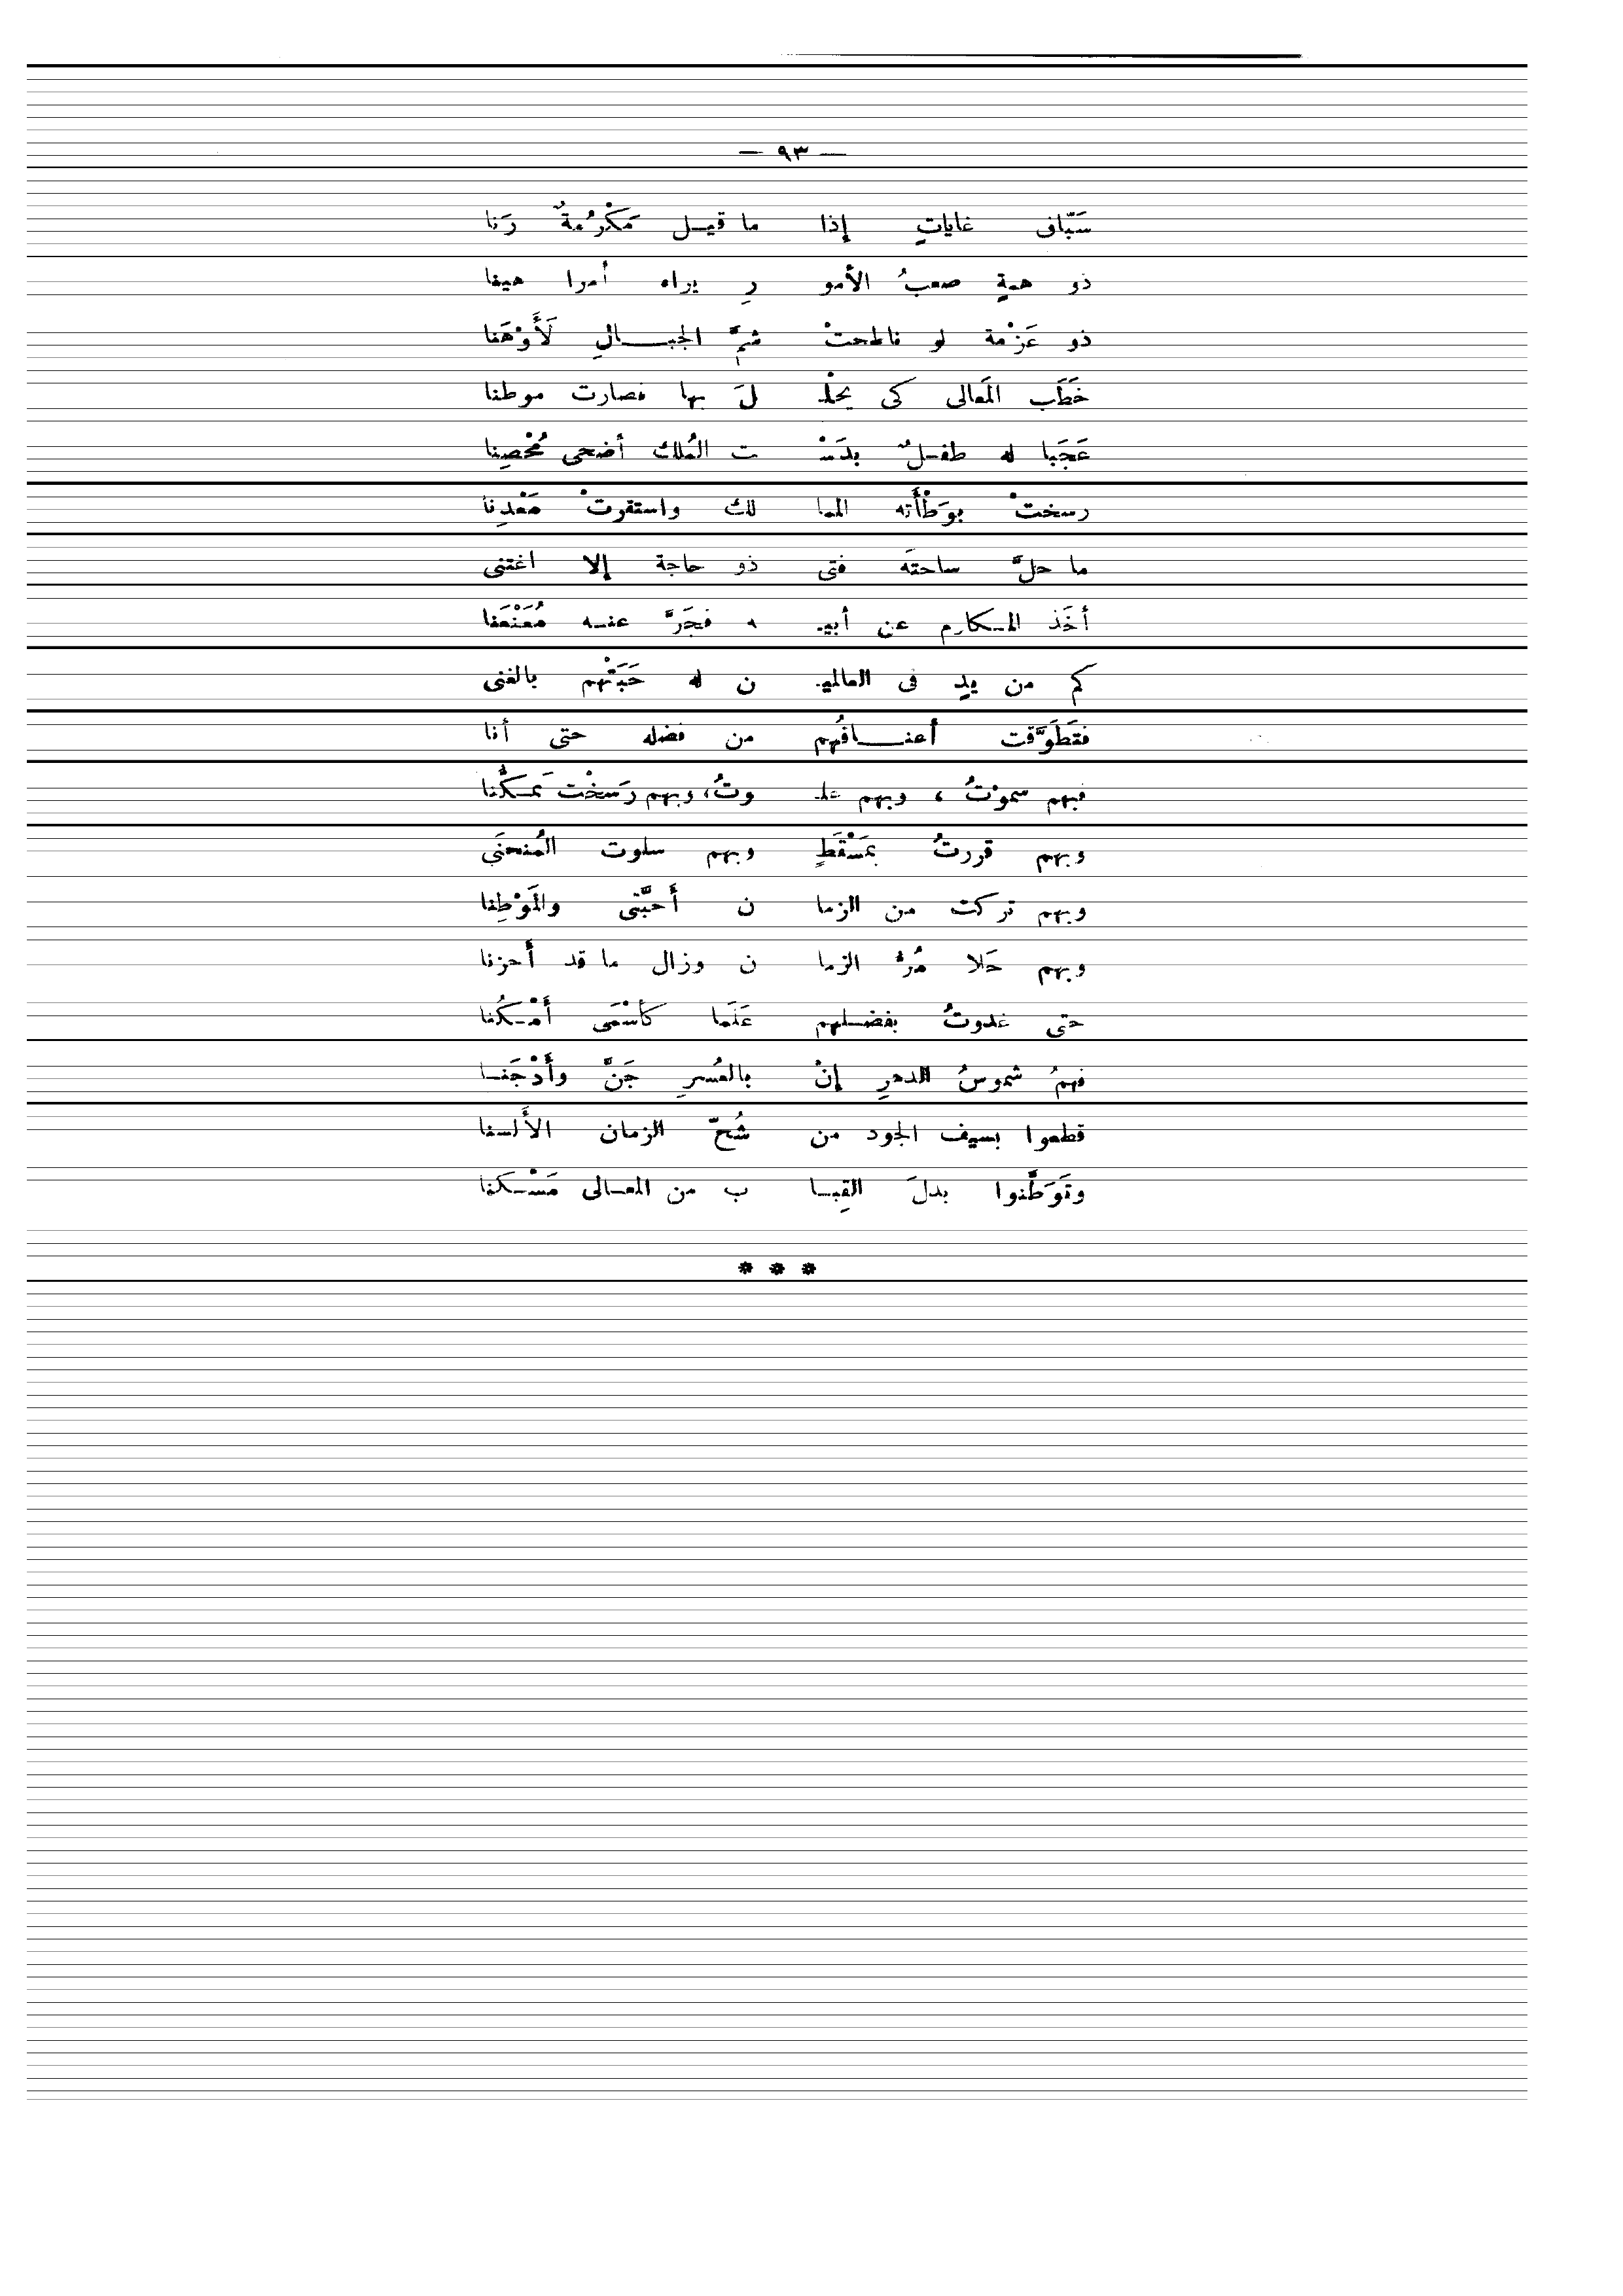 — ٩٣ —
سَبّاق غاياتٍ إذا ما قيل مَكْرُمةٌ رَنا
ذو همةٍ صعبُ الأمو رِ يراه أمرا هينا
ذو عَزْمة لو ناطحتْ شمَّ الجبالِ لَأَوْهَنا
خَطَب المَعالى كى يحْلـ لَ بها فصارت موطنا
عَجَبا له طفلٌ بدَسْـ ت المُلك أضحى مُحْصِنا
رسختْ بوَطْأَته المما لك واستقرتْ مَعْدِنا
ما حلَّ ساحتَه فتى ذو حاجة إلا اغتنى
أخَذ المكارم عن أبيـ ه فجَرَّ عنه مُعَنْعَنا
كم من يدٍ فى العالميـ ن له حَبَتْهم بالغنى
فتَطَوَّقت أعناقُهم من فضله حتى أنا
فبهم سموْتُ ، وبهم علـ وتُ، وبهم رَسخْت تَمكُّنا
وبهم قررتُ بمَسْقَطٍ وبهم سلوت المُنحنَى
وبهم تركت من الزما ن أَحبَّتى والمَوْطِنا
وبهم حَلا مُرُّ الزما ن وزال ما قد أَحزنا
حتى غدوتُ بفضلهم عَلَما كأسْمَى أَمْكُنا
فهمُ شموسُ الدهرِ إنْ بالعُسرِ جَنَّ وأَدْجَنا
قطعوا بسيف الجود من شُحّ الزمان الأَلسنا
وتَوَطَّنوا بدلَ القِبا ب من المعالى مَسْكنا
* * *